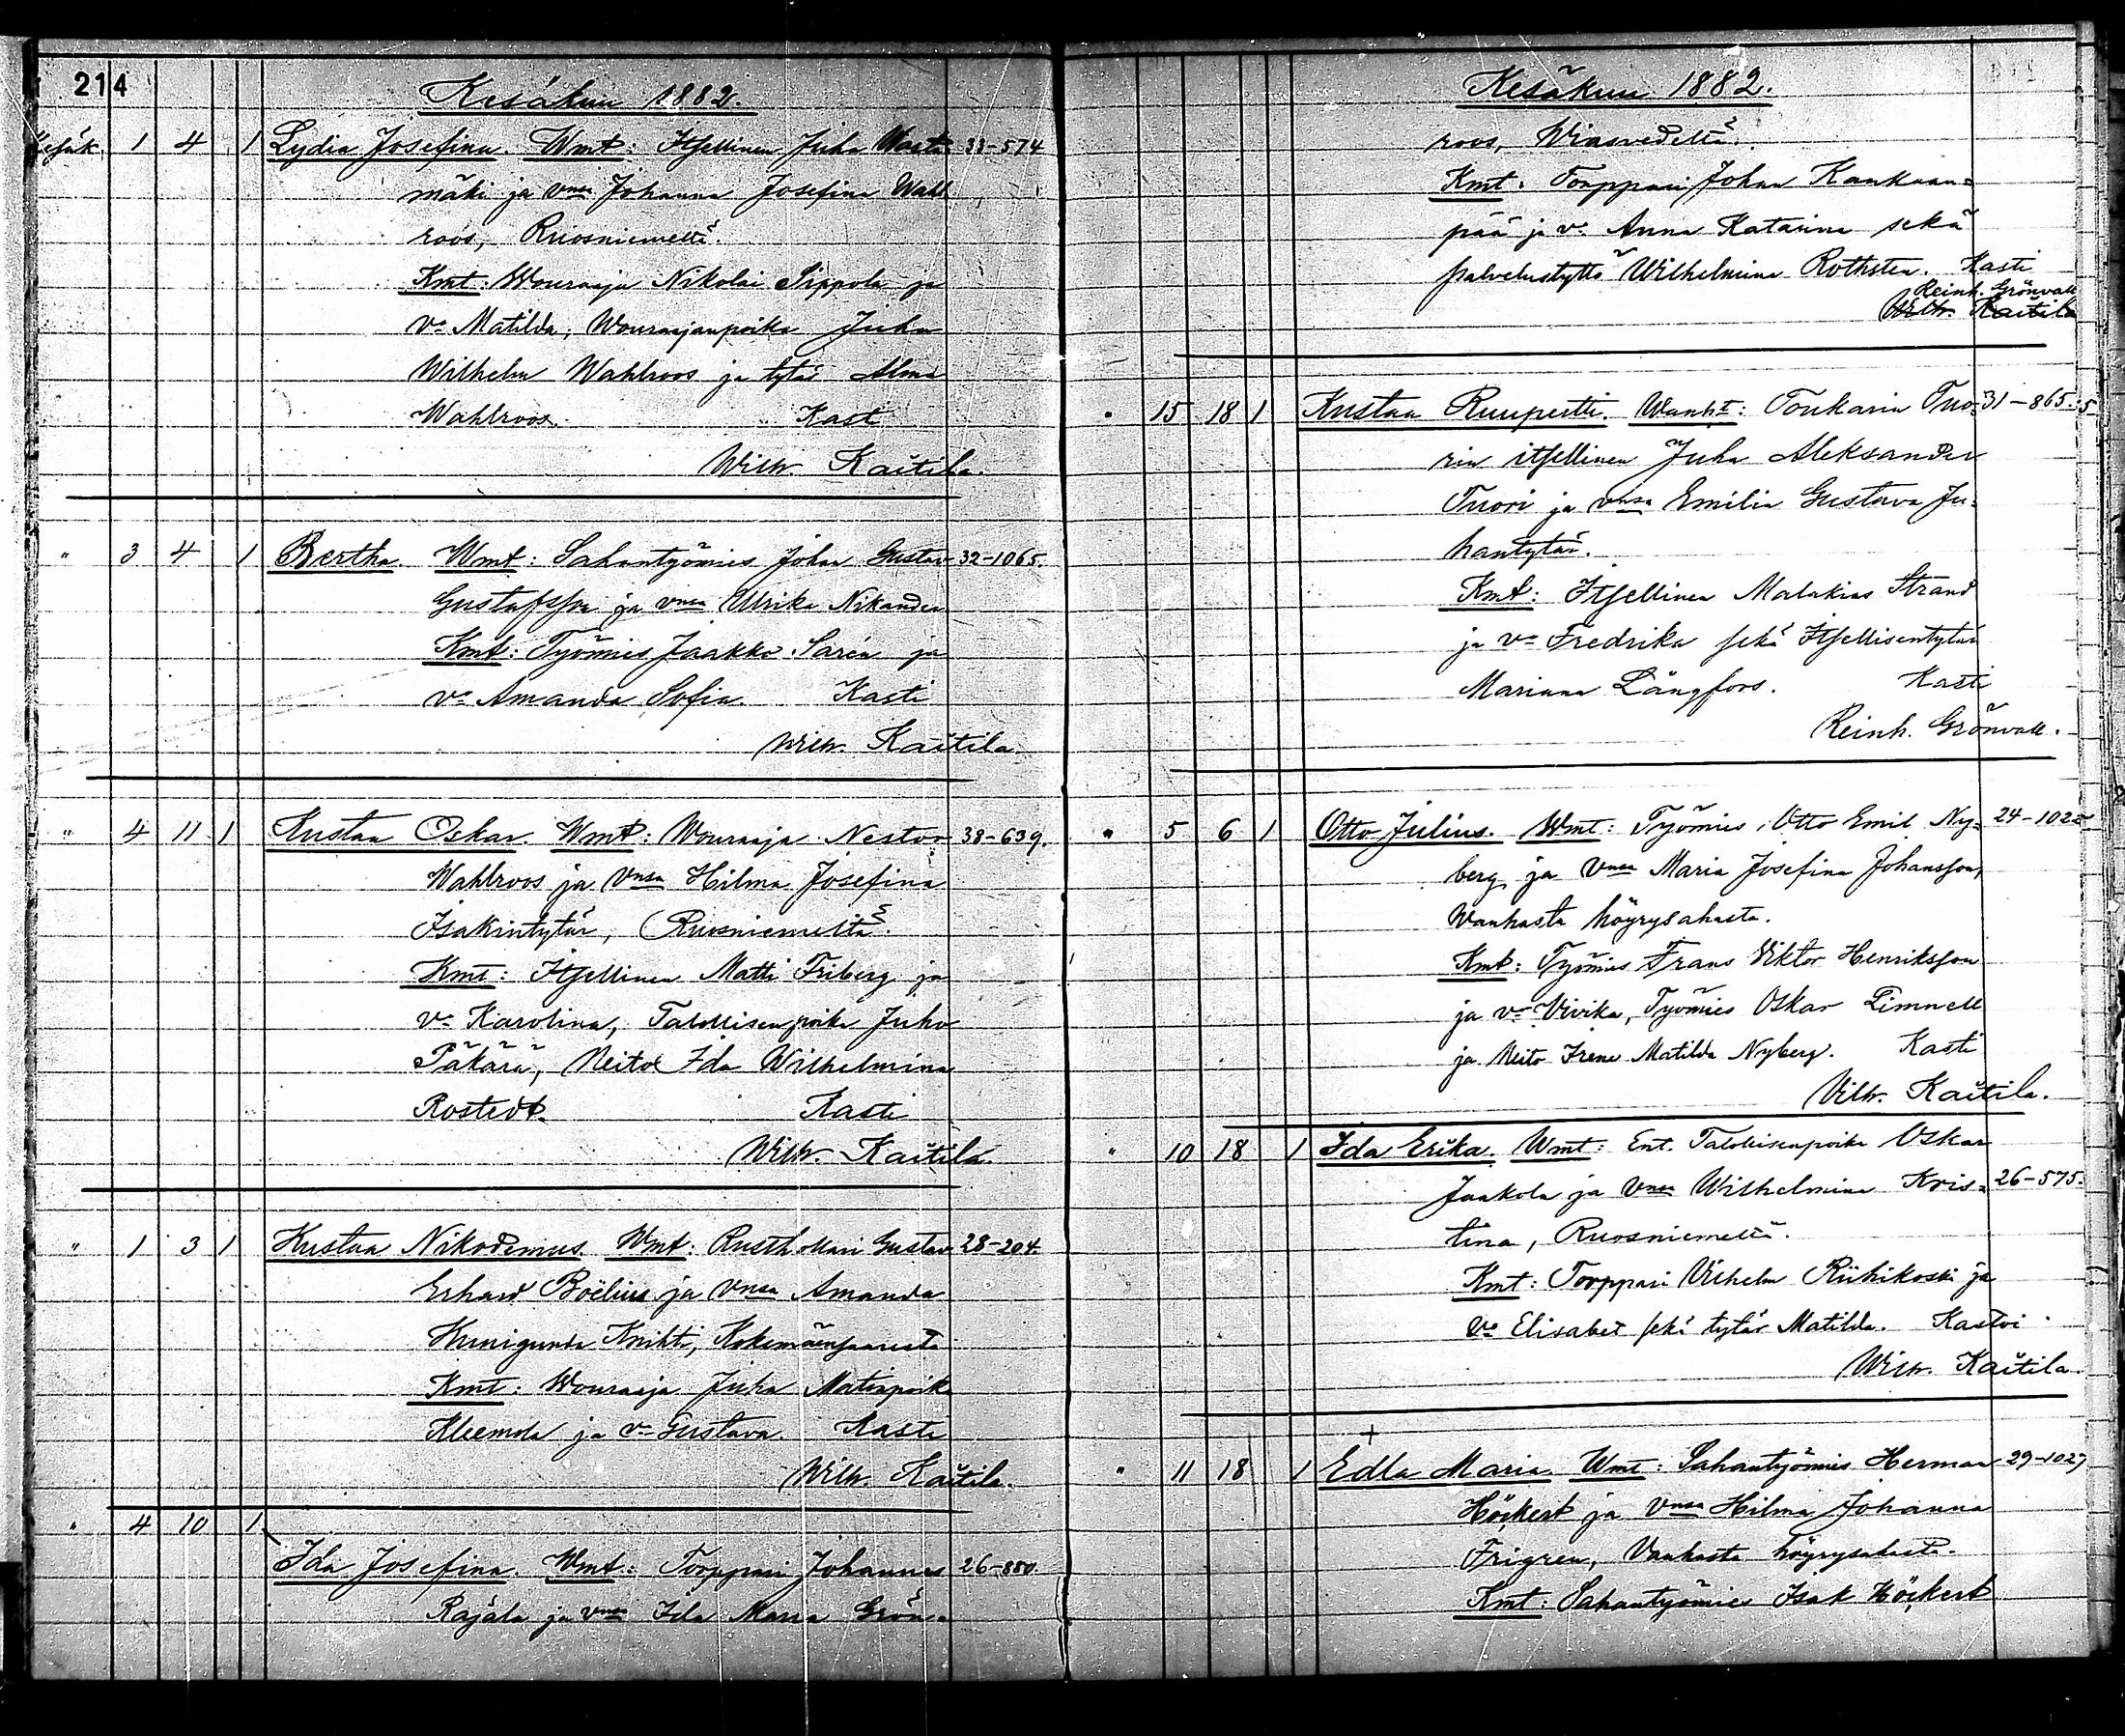 214
Kesäkuu 1882.
Kesäk. 1 4 1 Lydia Josefina. Wmt: Itsellinen Juha Wasta- 33-574
mäki ja vnsa Johanna Josefina Wahl
roos, Ruosniemeltä.
Kmt: Wouraaja Nikolai Sippola ja
va Matilda, Wouraajanpoika Juha
Wilhelm Wahlroos ja tytär Alma
Wahlroos. Kast
Wilh. Kaitila.
" 3 4 1 Bertha Wmt: Sahantyömies Johan Gustav 32-1065.
Gustafsson ja vnsa Ulrika Nikander
Kmt: Työmies Jaakko Sarén ja
va Amanda Sofia. Kasti
Wilh. Kaitila.
" 4 11 1 Kustaa Oskar. Wmt: Wouraaja Nestor 38-639.
Wahlroos ja vnsa Hilma Josefina
Isakintytär, Ruosniemeltä.
Kmt: Itsellinen Matti Friberg ja
va Karolina, Talollisenpoika Juho
Päkärä, Neito Ida Wilhelmina
Rostedt. Kasti
Wilh. Kaitila.
" 1 3 1 Kustaa Nikodemus. Wmt: Rusthollari Gustav 28-204.
Erhard Boëlius ja vnsa Amanda
Kunigunda Knihti, Kokemäensaaresta
Kmt: Wouraaja Juha Matinpoika
Kleemola ja va Gustava. Kasti
Wilh. Kaitila.
" 4 10 1
Ida Josefina. Wmt: Torppari Johannes 26-880.
Rajala ja vnsa Ida Maria Grön-
Kesäkuu 1882.
roos, Wiasvedeltä.
Kmt: Torppari Johan Kankaan=
pää ja va Anna Katarina sekä
palvelustyttö Wilhelmina Rothsten. Kasti
Reinh. Grönvall
Wilh. Kaitila
" 15 18 1 Kustaa Ruupertti. Wanht: Toukarin Tuo- 31-865.
rin itsellinen Juha Aleksander
Tuori ja vnsa Emilia Gustava Ju-
hantytär.
Kmt: Itsellinen Malakias Strand
ja va Fredrika sekä Itsellisentytär
Marianna Långfors. Kasti
Reinh. Grönvall.
" 5 6 1 Otto Julius. Wmt: Työmies Otto Emil Ny= 24-1025
berg ja vnsa Maria Josefina Johansson,
Wanhasta höyrysahasta.
Kmt: Työmies Frans Viktor Henriksson
ja va Vivika, Työmies Oskar Limnell
ja Neito Irene Matilda Nyberg. Kasti
Vilh. Kaitila.
" 10 18 1 Ida Erika. Wmt: Ent. Talollisenpoika Oskar
Jaakola ja vnsa Wilhelmina Kris= 26-575.
tina, Ruosniemeltä.
Kmt: Torppari Vilhelm Riihikoski ja
va Elisabet sekä tytär Matilda. Kastoi
Wilh. Kaitila.
+
" 11 18 1 Edla Maria. Wmt: Sahantyömies Herman 29-1027
Höckert ja vnsa Hilma Johanna
Frigren, Vanhasta höyrysahasta.
Kmt: Sahantyömies Isak Höckert